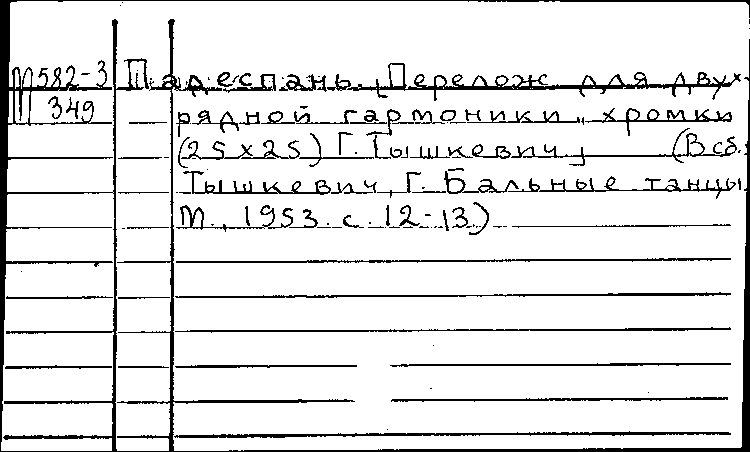 М582-3 Падеспань. [Перелож для двух-
349 рядной гармоники „хромки
(25х25) Г. Тышкевич] (В сб.:
Тышкевич, Г. Бальные танцы.
М., 1953. с. 12-13)